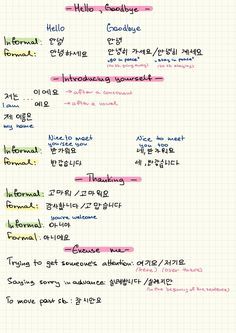 Hello, Goodbye
Hello Goodbye
Informal: 안녕 안녕
Formal: 안녕하세요 안녕히 가세요/안녕히 계세요
"go in peace" "stay in peace"
Introducing yourself
저는 ... 이에요 → after a consonant
I am ... 예요 → after a vowel
제 이름은
my name
Nice to meet Nice to meet
you/see you you too
Informal: 반가워요 네, 반가워요
Formal: 반갑습니다 네, 반갑습니다
Thanking
Informal: 고마워 / 고마워요
Formal: 감사합니다 / 고맙습니다
you're welcome
Informal: 아니야
Formal: 아니에요
Excuse me
Trying to get someone's attention: 여기요 / 저기요
(here) (over there)
Saying sorry in advance: 실례합니다 / 실례지만
(in the beginning of the sentence)
To move past sb.: 잠시만요